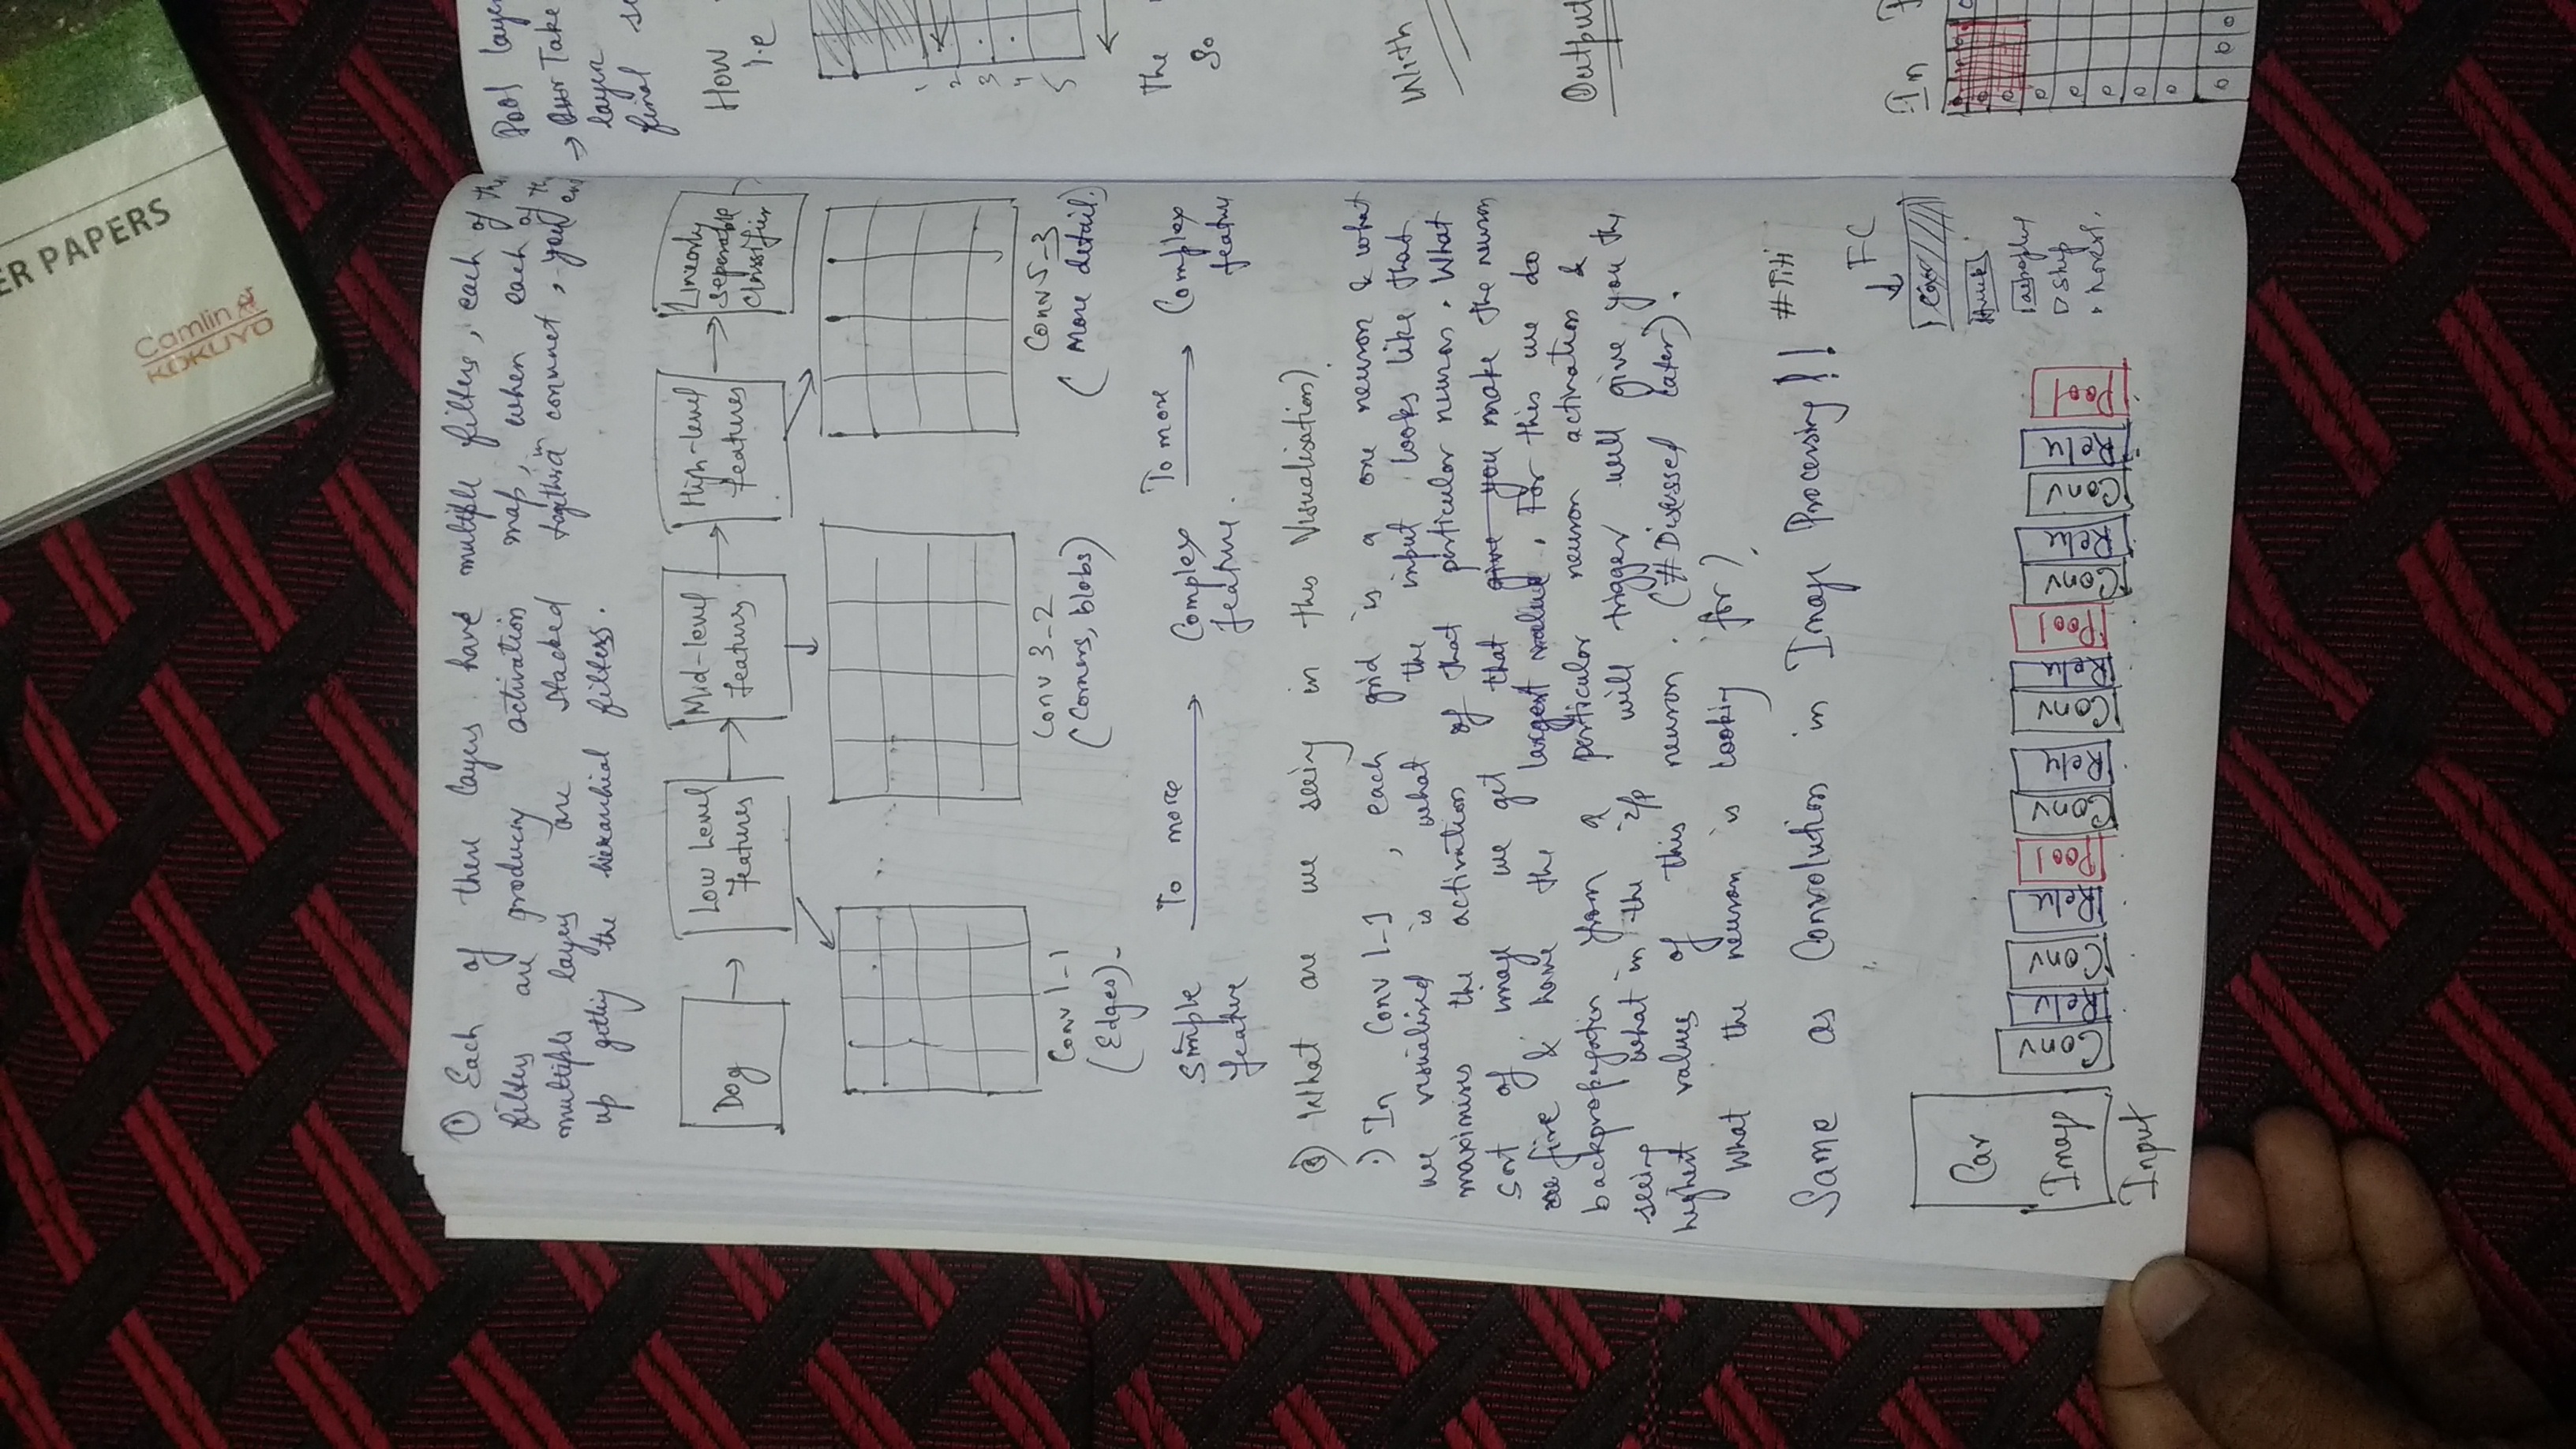 ① Each of these layers have multiple filters, each of the
filters are producing activation map, when each of the
multiple layers are stacked together in convnet, you end
up getting the hierarchial filters.
Dog → Low Level Features → Mid-level Features → High-level Features → Linearly separable classifier
Conv 1-1
(Edges)
Conv 3-2
(Corners, blobs)
Conv 5-3
(More detail).
Simple feature To more → Complex feature. To more → Complex feature
② What are we seeing in this Visualisation)
:) In Conv 1-1, each grid is a one neuron & what
we visualised is what the input looks like that
maximises the activation of that particular neuron. What
sort of image we get that give you make the neuron
fire & have the largest value. For this we do
backpropogation from a particular neuron activation &
seeing what in the i/p will trigger will give you the
highest values of this neuron. (# Disessed Later).
What the neuron is looking for?
Same as Convolution in Image Processing!!
Car Imag
Input
Conv Relu Conv Relu Pool Conv Relu Conv Relu Pool Conv Relu Conv Relu Pool
↓ FC
Car
truck
ship
Pool layer
→ Take
layer
final
How
i.e
1
2
3
4
5
The
So
With
Output
In
ER PAPERS
Camlin
KOKUYO